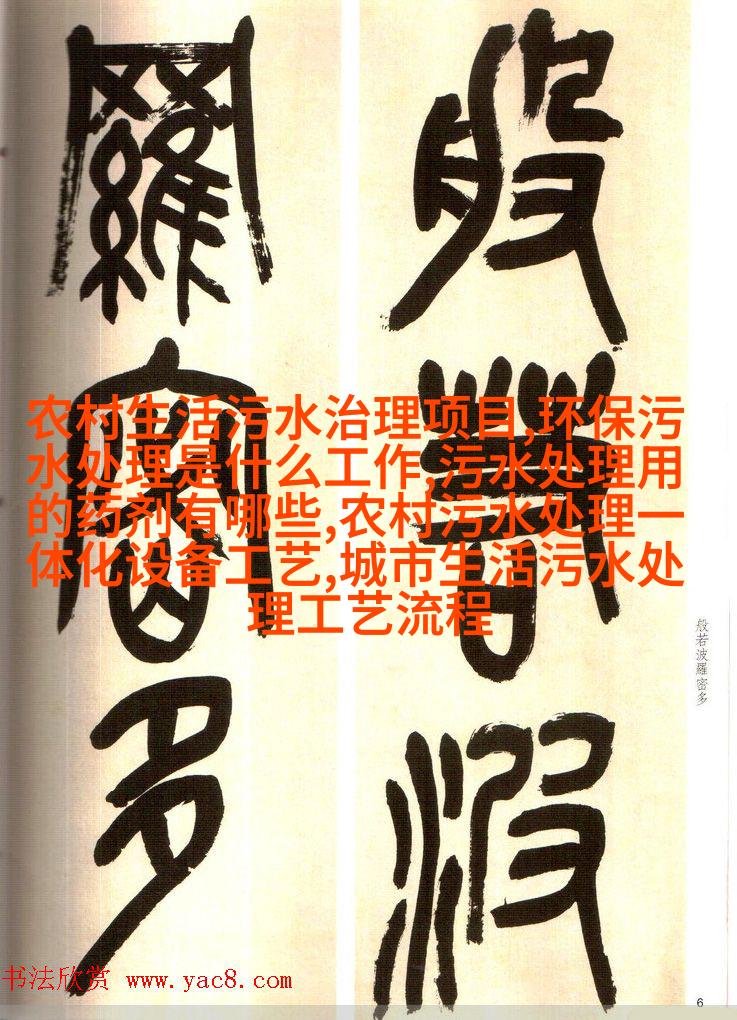 般若波
羅密多
农村生活污水治理项目,环保污
水处理是什么工作,污水处理用
的药剂有哪些,农村污水处理一
体化设备工艺,城市生活污水处
理工艺流程
般若波羅密多
书法欣赏 www.yac8.com
6